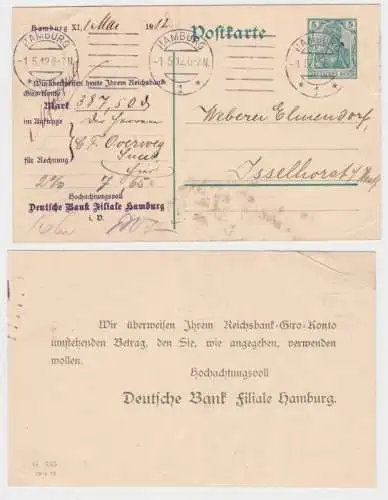 Hamburg XI, 1 Mai 1912
Postkarte
HAMBURG
-1.5.12.6-7N.
* 1 *
HAMBURG
* 1 *
5 5
DEUTSCHES REICH
Wir überweisen heute Ihrem Reichsbank
Giro-Konto
Mark 387,50
im Auftrage der Herren
C. F. Overweg
für Rechnung
hier
Hochachtungsvoll
Deutsche Bank Filiale Hamburg
i. V.
Weberei Elmendorf,
Isselhorst /
Wir überweisen Ihrem Reichsbank-Giro-Konto
umstehenden Betrag, den Sie, wie angegeben, verwenden
wollen.
Hochachtungsvoll
Deutsche Bank Filiale Hamburg.